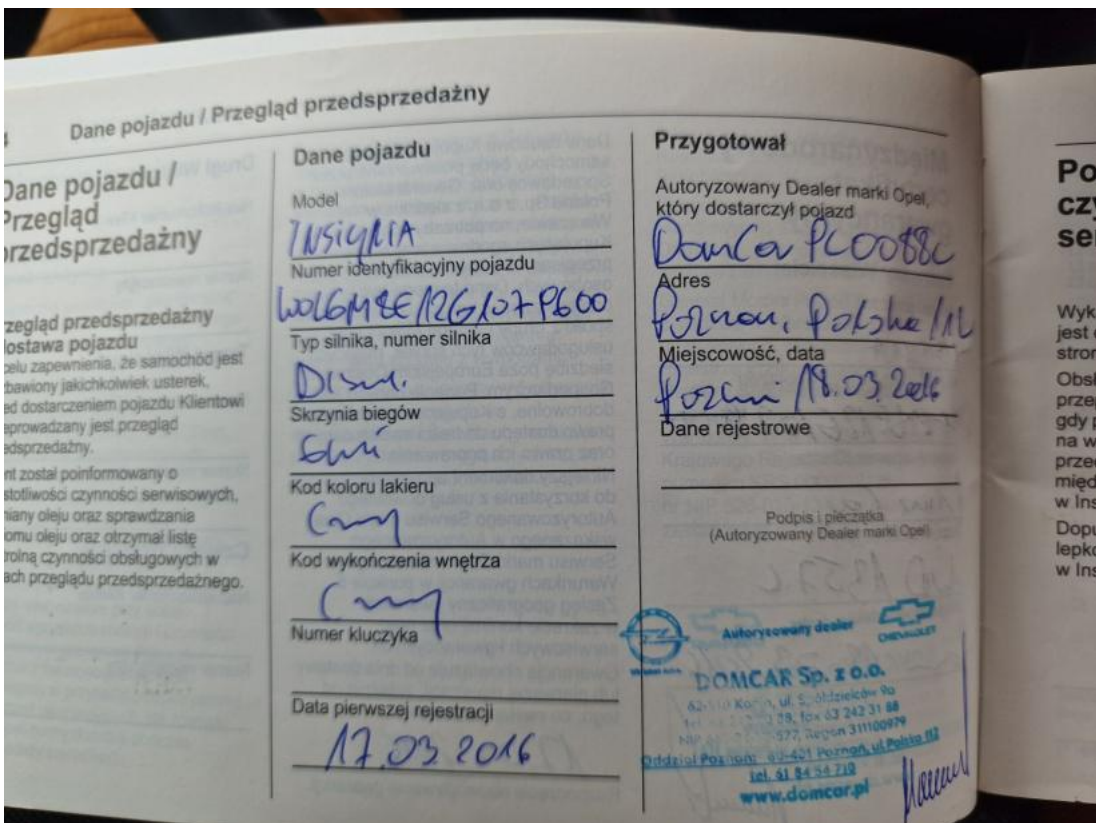 Dane pojazdu / Przegląd przedsprzedażny
Dane pojazdu /
Przegląd
przedsprzedażny
przegląd przedsprzedażny
dostawa pojazdu
celu zapewnienia, że samochód jest
zbawiony jakichkolwiek usterek,
ed dostarczeniem pojazdu Klientowi
eprowadzany jest przegląd
edsprzedażny.
nt został poinformowany o
stotliwości czynności serwisowych,
niany oleju oraz sprawdzania
omu oleju oraz otrzymał listę
trolną czynności obsługowych w
ach przeglądu przedsprzedażnego.
Dane pojazdu
Model
INSIGNIA
Numer identyfikacyjny pojazdu
Typ silnika, numer silnika
Skrzynia biegów
Kod koloru lakieru
Kod wykończenia wnętrza
Numer kluczyka
Data pierwszej rejestracji
17.03.2016
Przygotował
Autoryzowany Dealer marki Opel,
który dostarczył pojazd
DomCar PL0088C
Adres
Poznań, Polska 112
Miejscowość, data
Poznań / 18.03.2016
Dane rejestrowe
Podpis i pieczątka
(Autoryzowany Dealer marki Opel)
Autoryzowany dealer
CHEVROLET
DOMCAR Sp. z o.o.
ul. Spółdzielców 9a
fax 63 242 31 88
Regon 311100979
Oddział Poznań: Poznań, ul. Polska 112
tel. 61 84 54 710
www.domcar.pl
Po
czy
se
Wyk
jest
stron
Obsł
przep
gdy p
na w
przed
międ
w Ins
Dopu
lepko
w Ins